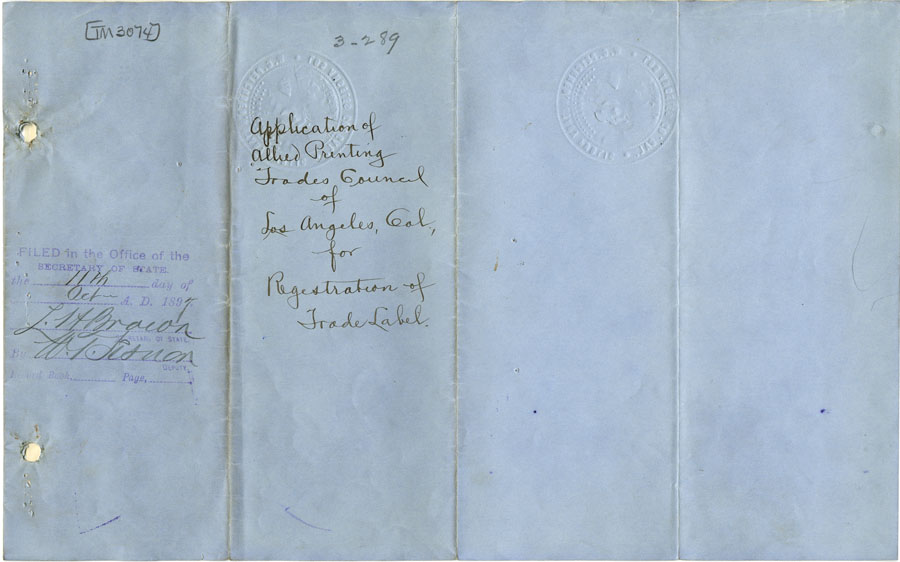 [TM3074]
FILED in the Office of the
SECRETARY OF STATE
the 11th day of
Oct A. D. 1897
L. H. Brown
SECRETARY OF STATE
By
DEPUTY.
Record Book Page,
3-289
Application of
Allied Printing
Trades Council
of
Los Angeles, Cal.,
for
Registration of
Trade Label.